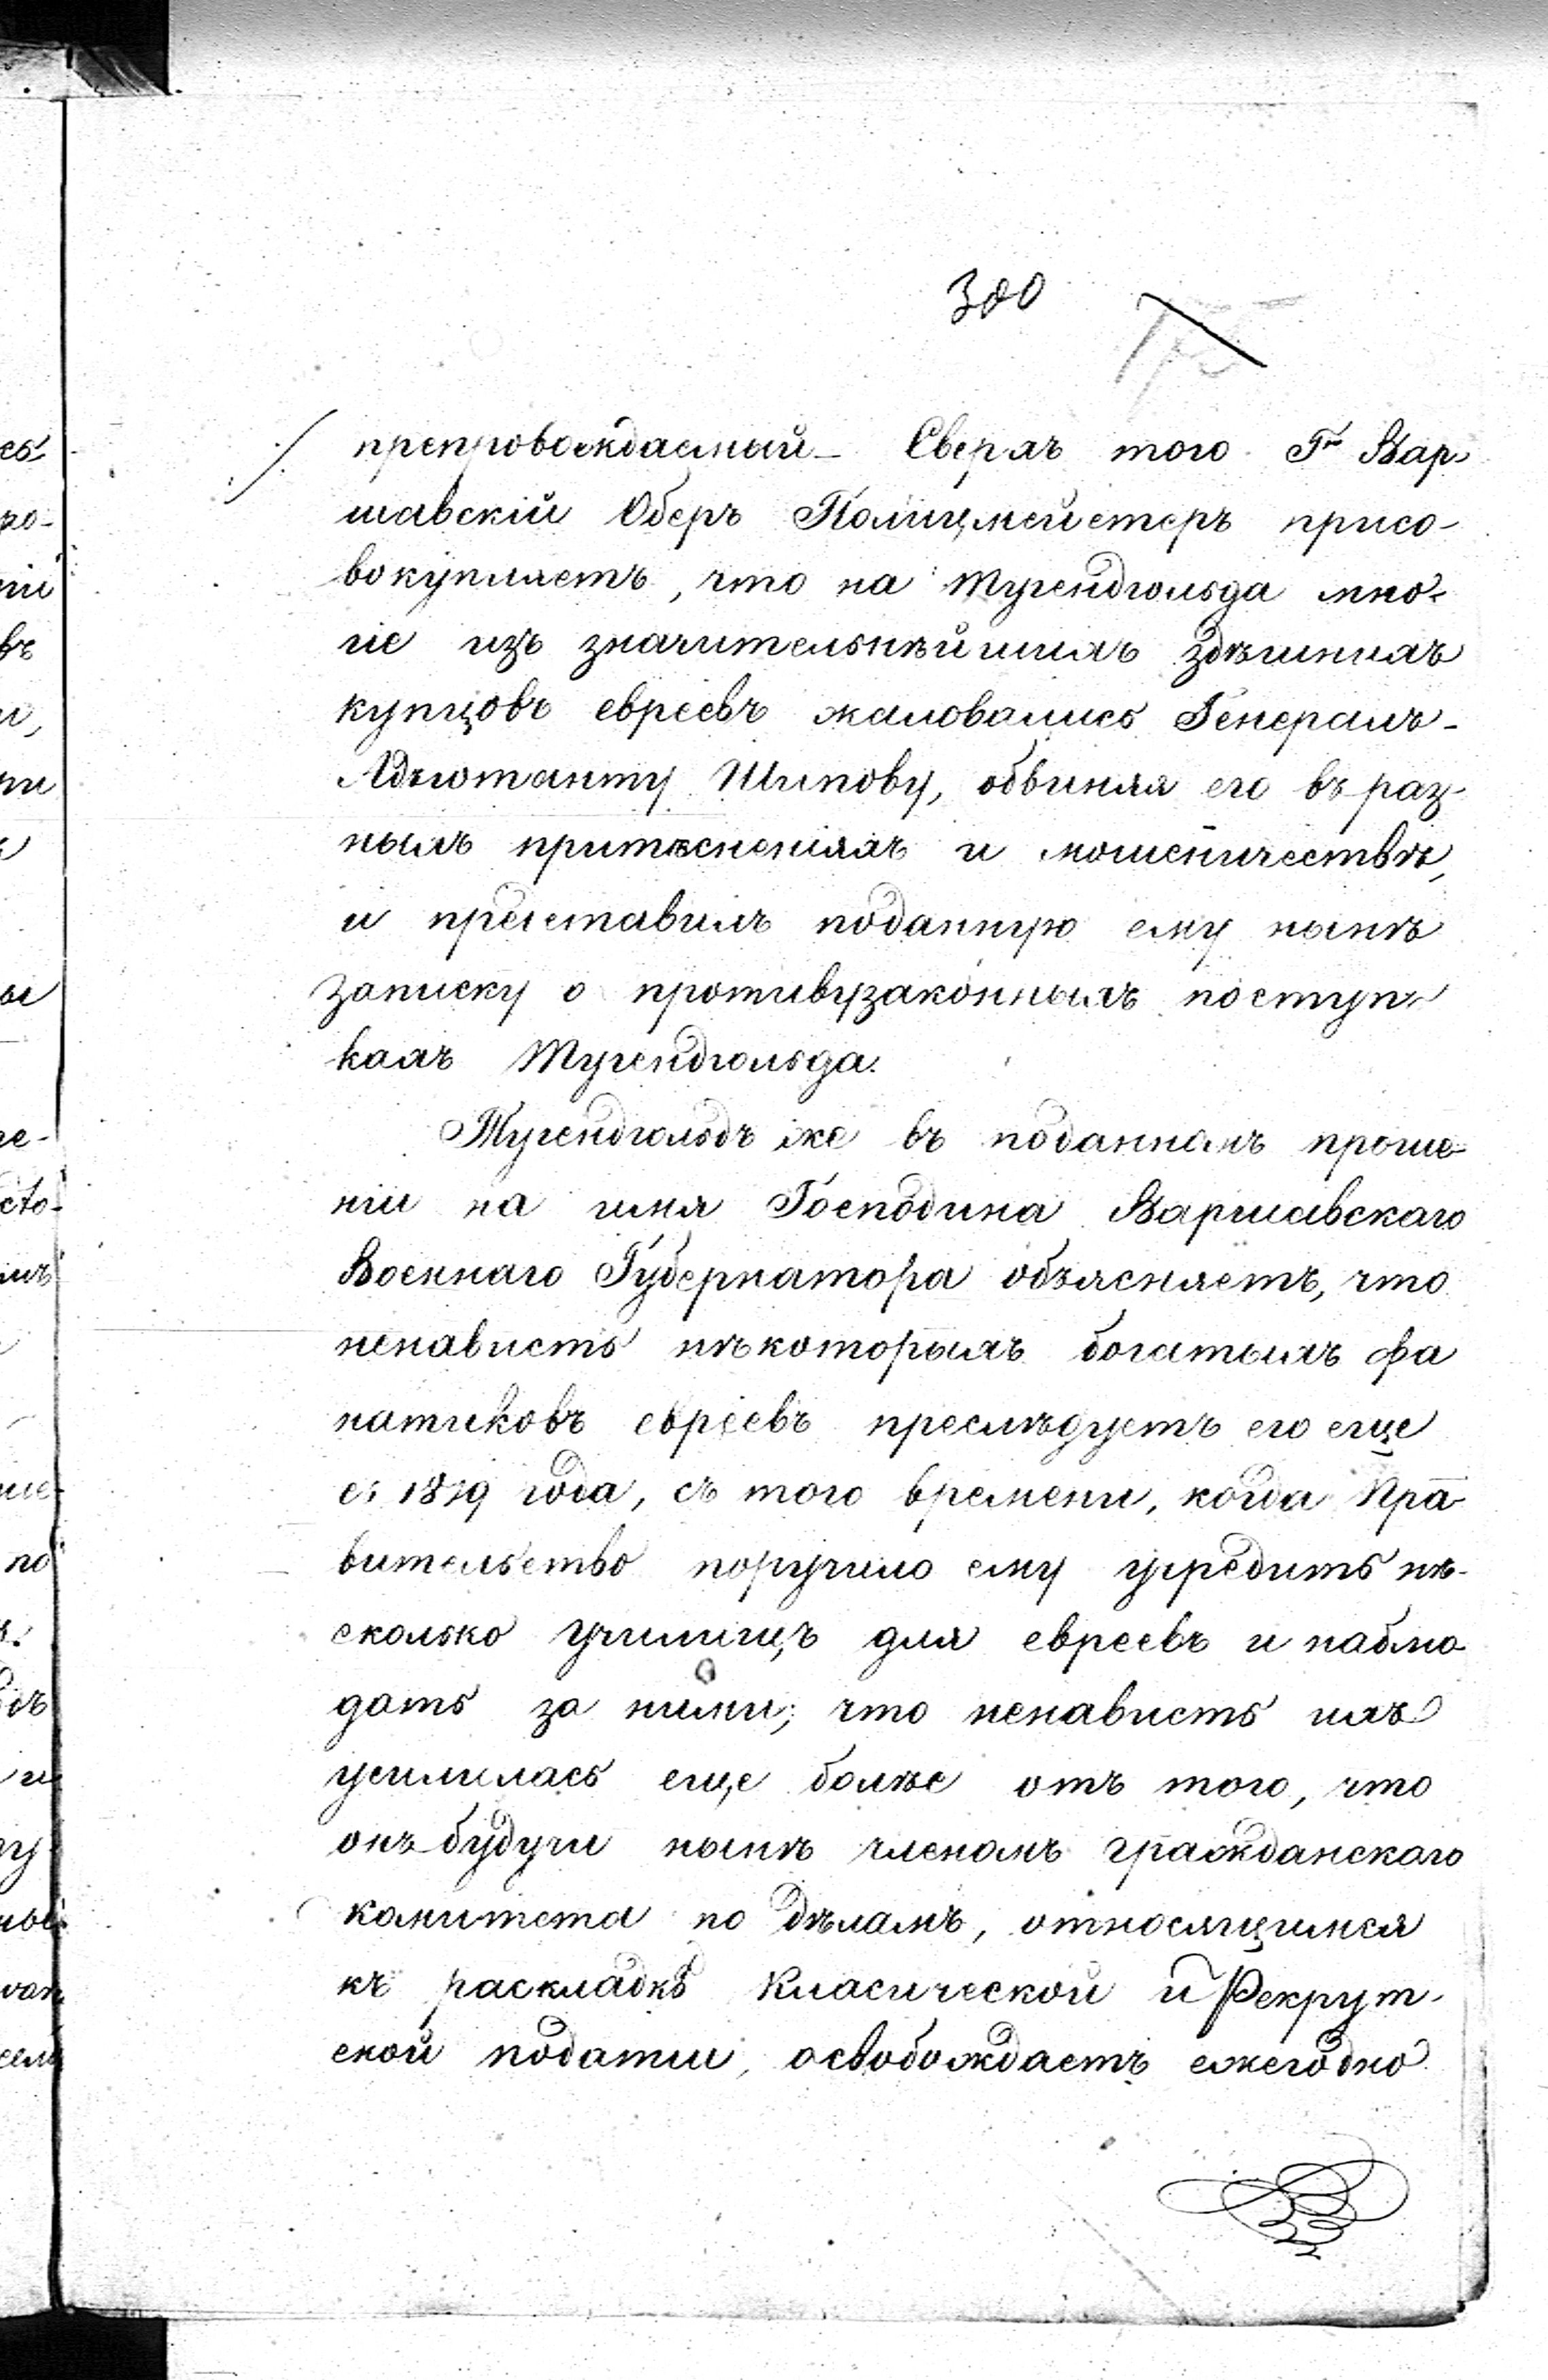 300
препровождаемый – Сверхъ того Гнъ Вар-
шавскій Оберъ Полицмейстеръ присо-
вокупляетъ, что на Тугендгольда мно-
гіе изъ значительнѣйшихъ здѣшнихъ
купцовъ евреевъ жаловались Генералъ-
Адъютанту Шипову, обвиняя его въ раз-
ныхъ притѣсненіяхъ и мошеничествѣ,
и представилъ поданную ему нынѣ
записку о противузаконныхъ поступ-
кахъ Тугендгольда.
Тугендгольдъ же въ поданномъ проше-
ніи на имя Господина Варшавскаго
Военнаго Губернатора объясняетъ, что
ненависть нѣкоторыхъ богатыхъ фа
натиковъ евреевъ преслѣдуетъ его еще
съ 1819 года, съ того времени, когда Пра-
вительство поручило ему учредить нѣ-
сколько училищъ для евреевъ и наблю-
дать за ними; что ненависть ихъ
усилилась еще болѣе отъ того, что
онъ будучи нынѣ членомъ гражданскаго
комитета по дѣламъ, относящимся
къ раскладкѣ класической и Рекрут-
ской подати, освобождаетъ ежегодно